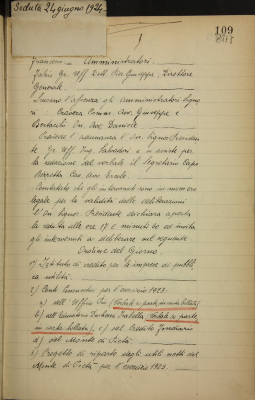 Seduta 24 giugno 1924
109
1
Francesco — Amministratori.
Fabri Gr. Uff. Dott. Avv. Giuseppe, Direttore
Generale.
l'assenza gli amministratori Signo
ri Cravera Comm. Avv. Giuseppe e
On. Avv. Daniele
Presiede l'adunanza il On. Signor Presiden
te Gr. Uff. Ing. Salvadori e vi assiste per
la redazione del verbale il Segretario Capo
Cav. Avv. Ercole.
Constatato che gli intervenuti sono in numero
legale per la validità delle deliberazioni
l'On. Signor Presidente dichiara aperta
la seduta alle ore 17 e minuti 60 ed invita
gli intervenuti a deliberare sul seguente
Ordine del Giorno.
1) Istituto di credito per le imprese di pubbli
ca utilità.
2) Conti Consuntivi per l'esercizio 1923.
a) dell'Ufficio Pio (Verbale a parte, in carta bollata)
b) dell' Isabella (Verbale a parte,
in carta bollata), c) del Credito Fondiario
d) del Monte di Pietà.
3) Progetto di riparto degli utili netti del
Monte di Pietà per l'esercizio 1923.